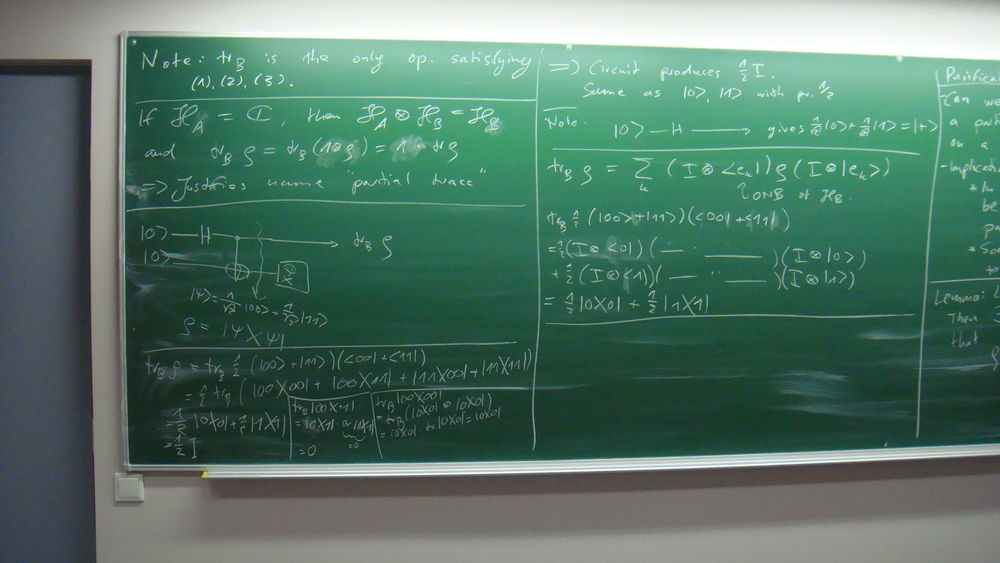 Note: tr_B is the only op. satisfying
(1), (2), (3).
If ℋ_A = ℂ, then ℋ_A ⊗ ℋ_B = ℋ_B
and tr_B ρ = tr_B (1⊗ρ) = 1 · tr ρ
=> Justifies name "partial trace"
|0> — H tr_B ρ
|0>
|ψ> = 1/√2 |00> + 1/√2 |11>
ρ = |ψX ψ|
tr_B ρ = tr_B 1/2 (|00> + |11>)(<00| + <11|)
= 1/2 tr_B (|00X00| + |00X11| + |11X00| + |11X11|)
= 1/2 |0X0| + 1/2 |1X1|
= 1/2 I
tr_B |00X11|
= |0X1| · tr |0X1|
=0
= 0
tr_B |00X00|
= tr_B (|0X0| ⊗ |0X0|)
= |0X0| · tr |0X0| = |0X0|
=> Circuit produces 1/2 I.
Same as |0>, |1> with pr. 1/2
Note:
|0> — H ⟶ gives 1/√2 |0> + 1/√2 |1> = |+>
tr_B ρ = Σ_k (I ⊗ <e_k|) ρ (I ⊗ |e_k>)
ONB of ℋ_B
tr_B 1/2 (|00> + |11>)(<00| + <11|)
= 1/2 (I ⊗ <0|)( — " — )(I ⊗ |0>)
+ 1/2 (I ⊗ <1|)( — " — )(I ⊗ |1>)
= 1/2 |0X0| + 1/2 |1X1|
Purifica
Can we
a
on a
- Implicatio
be
Lemma:
Then
that